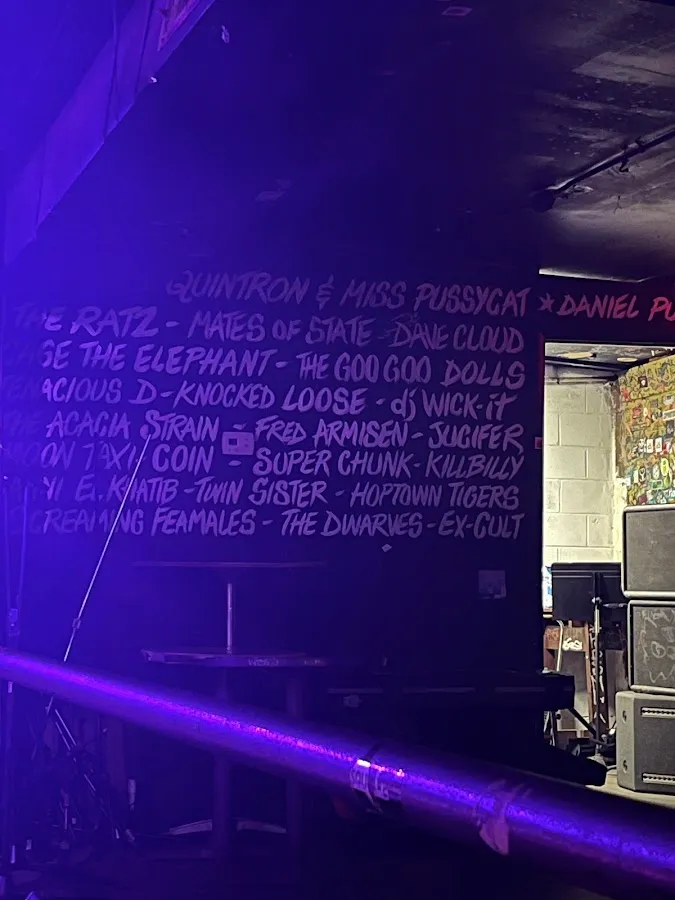 QUINTRON & MISS PUSSYCAT ★ DANIEL PU
THE RATZ - MATES OF STATE - DAVE CLOUD
GE THE ELEPHANT - THE GOO GOO DOLLS
NACIOUS D - KNOCKED LOOSE - dj WICK-iT
THE ACACIA STRAIN - FRED ARMISEN - JUCIFER
OON TAXI COIN - SUPER CHUNK - KILLBILLY
NI EL KHATIB - TWIN SISTER - HOPTOWN TIGERS
SCREAMING FEAMALES - THE DWARVES - EX-CULT